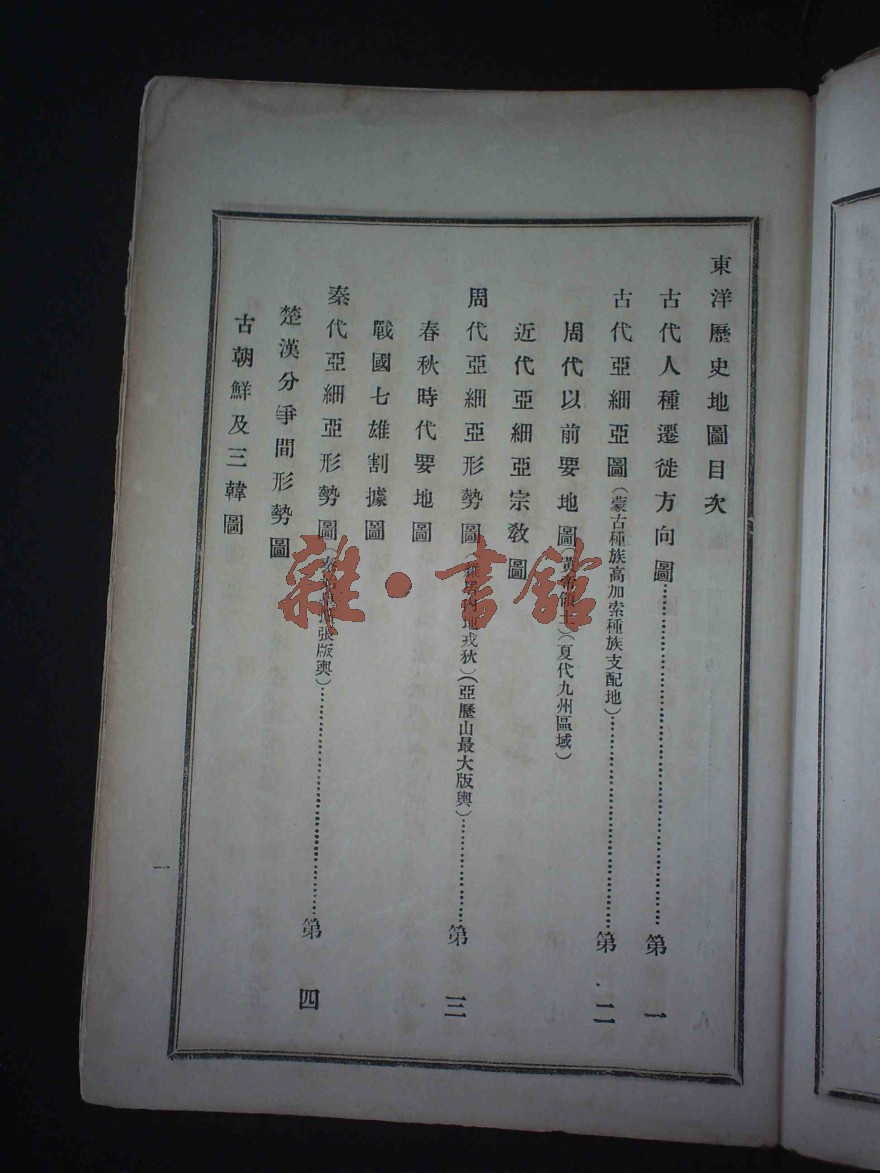 東洋歷史地圖目次
古代人種遷徙方向圖……第一
古代亞細亞圖(蒙古種族高加索種族支配地)……第二
周代以前要地圖(黃帝領土)(夏代九州區域)
近代亞細亞宗教圖
周代亞細亞形勢圖(地戎狄)(亞歷山最大版輿)……第三
春秋時代要地圖
戰國七雄割據圖
秦代亞細亞形勢圖(秦張版輿)……第四
楚漢分爭間形勢圖
古朝鮮及三韓圖
一
雜·書館